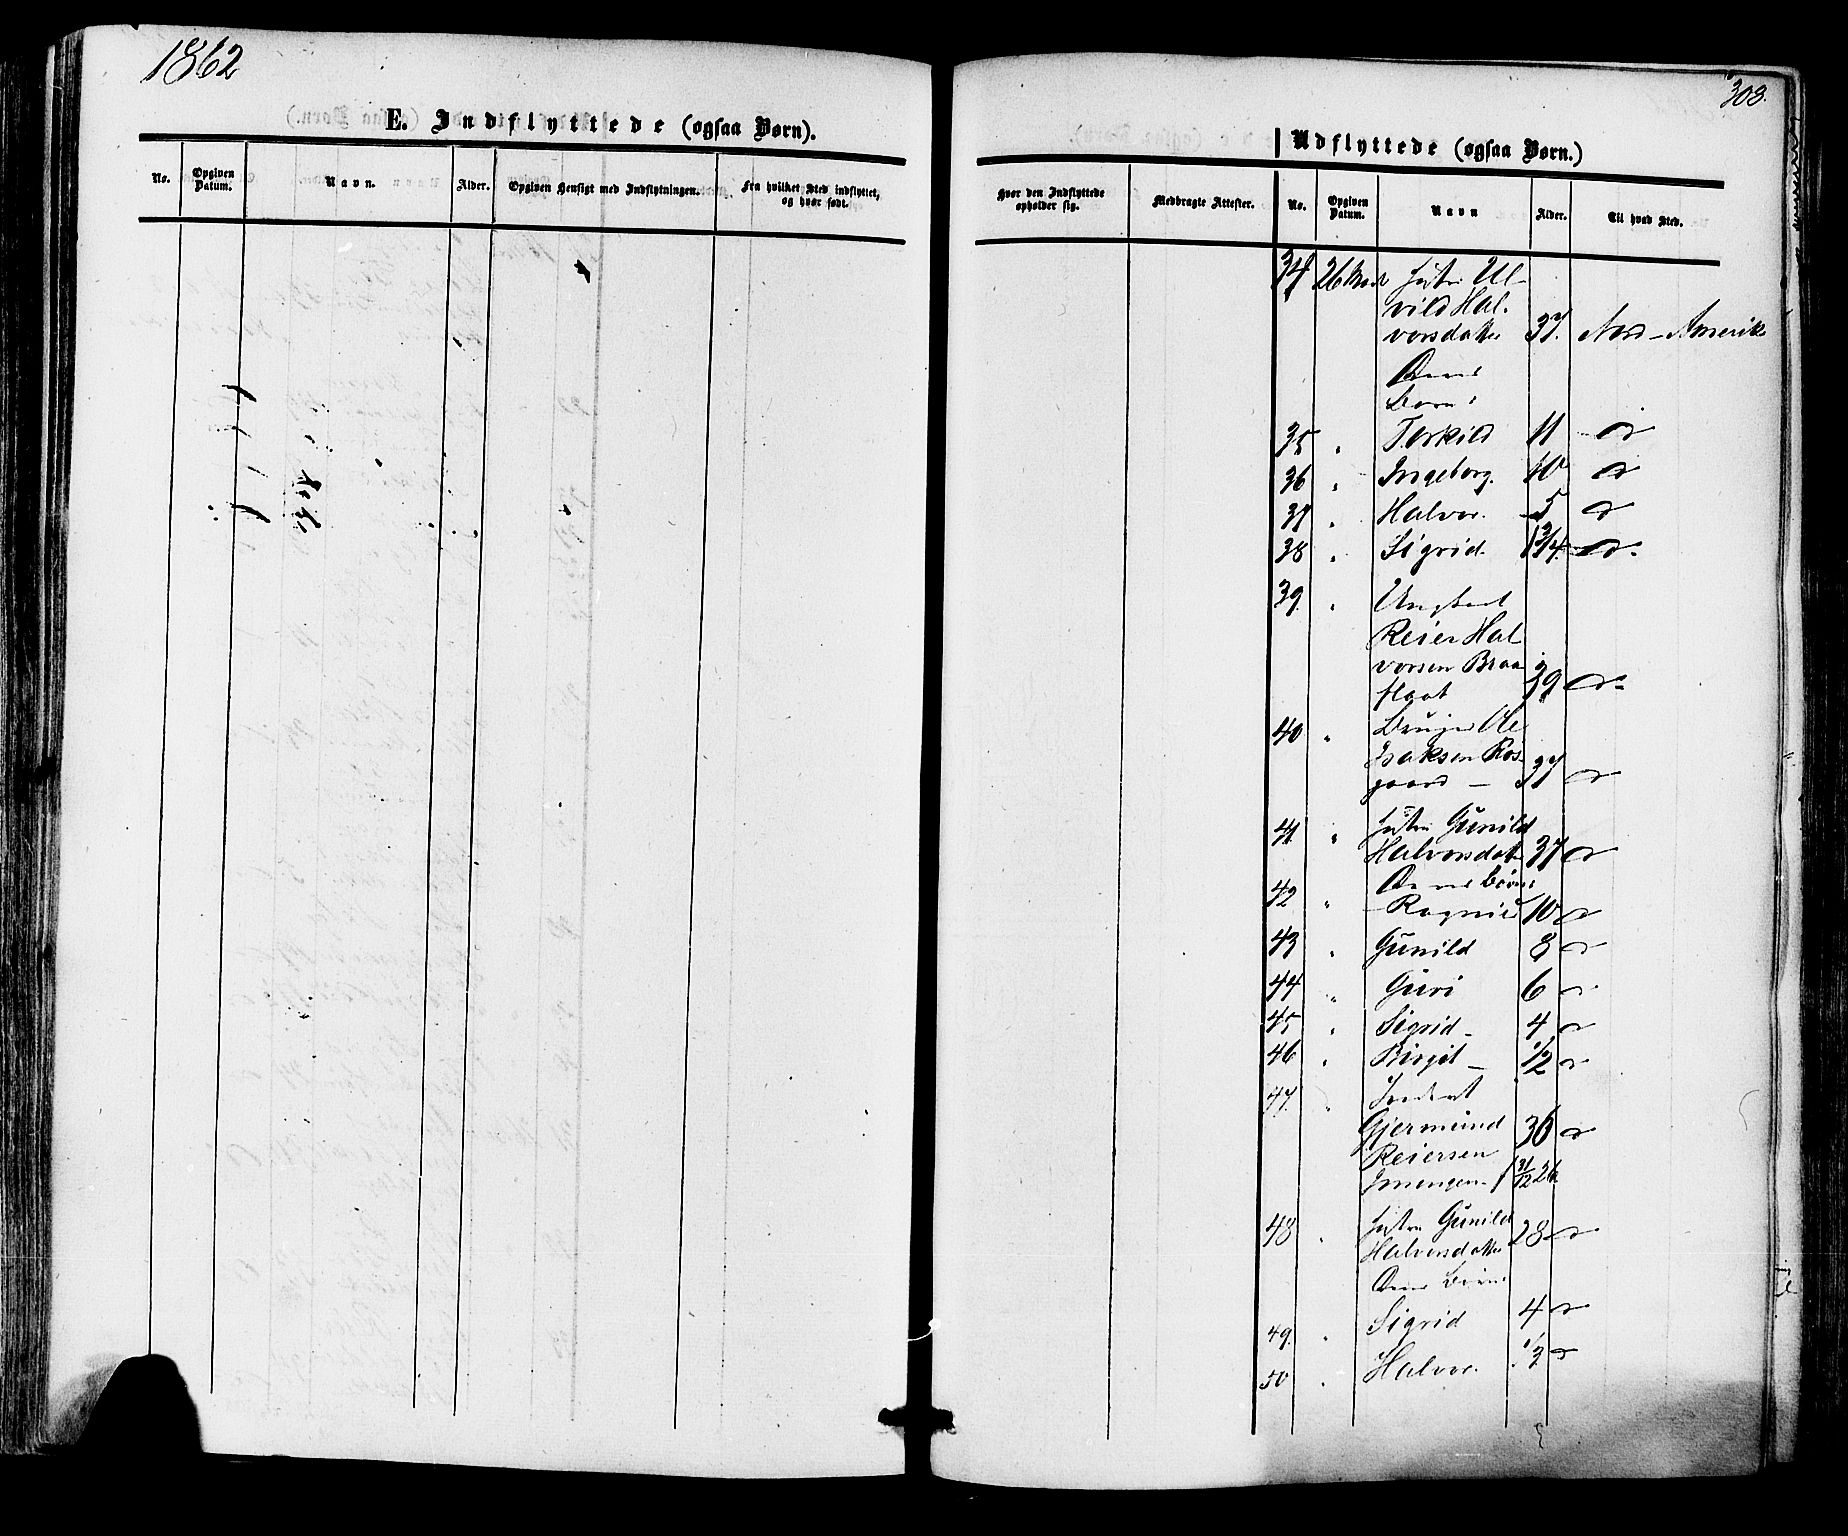 1862
308.
E. Indflyttede (ogsaa Børn).
Udflyttede (ogsaa Børn.)
No.
Opgiven Datum.
Navn.
Alder.
Opgiven Hensigt med Indflytningen.
Fra hvilket Sted indflyttet, og hvor født.
Hvor den Indflyttede opholder sig.
Medbragte Attester.
No.
Opgiven Datum.
Navn
Alder.
Til hvad Sted.
34 26 Hustru Ul-
vild Hal-
vorsdatter 37. Nord-Amerik
Børn:
35 " Torkild 11 do
36 " Ingeborg. 10 do
37 " Halvor. 5 do
38 " Sigrid. 1 3/4. do.
39. " Ungkarl
Reier Hal
vorsen Braa
flaat 39 do.
40 " Ole
Isaksen Ros-
gaard - 37 do
41 " Hustru Gunild
Halvorsdatter 37 do
42 " Børn:
Ragnild 10 do
43 " Gunild 8 do
44 " Guri 6 do
45 " Sigrid - 4 do
46 " Birgit - 1/2 do
47. "
Gjermund 36 do
Reiersen
31/12 26.
48 " Hustru Gunild
Halvorsdatter 28 do
Børn
49. " Sigrid 4 do
50 " Halvor. 1/2 do